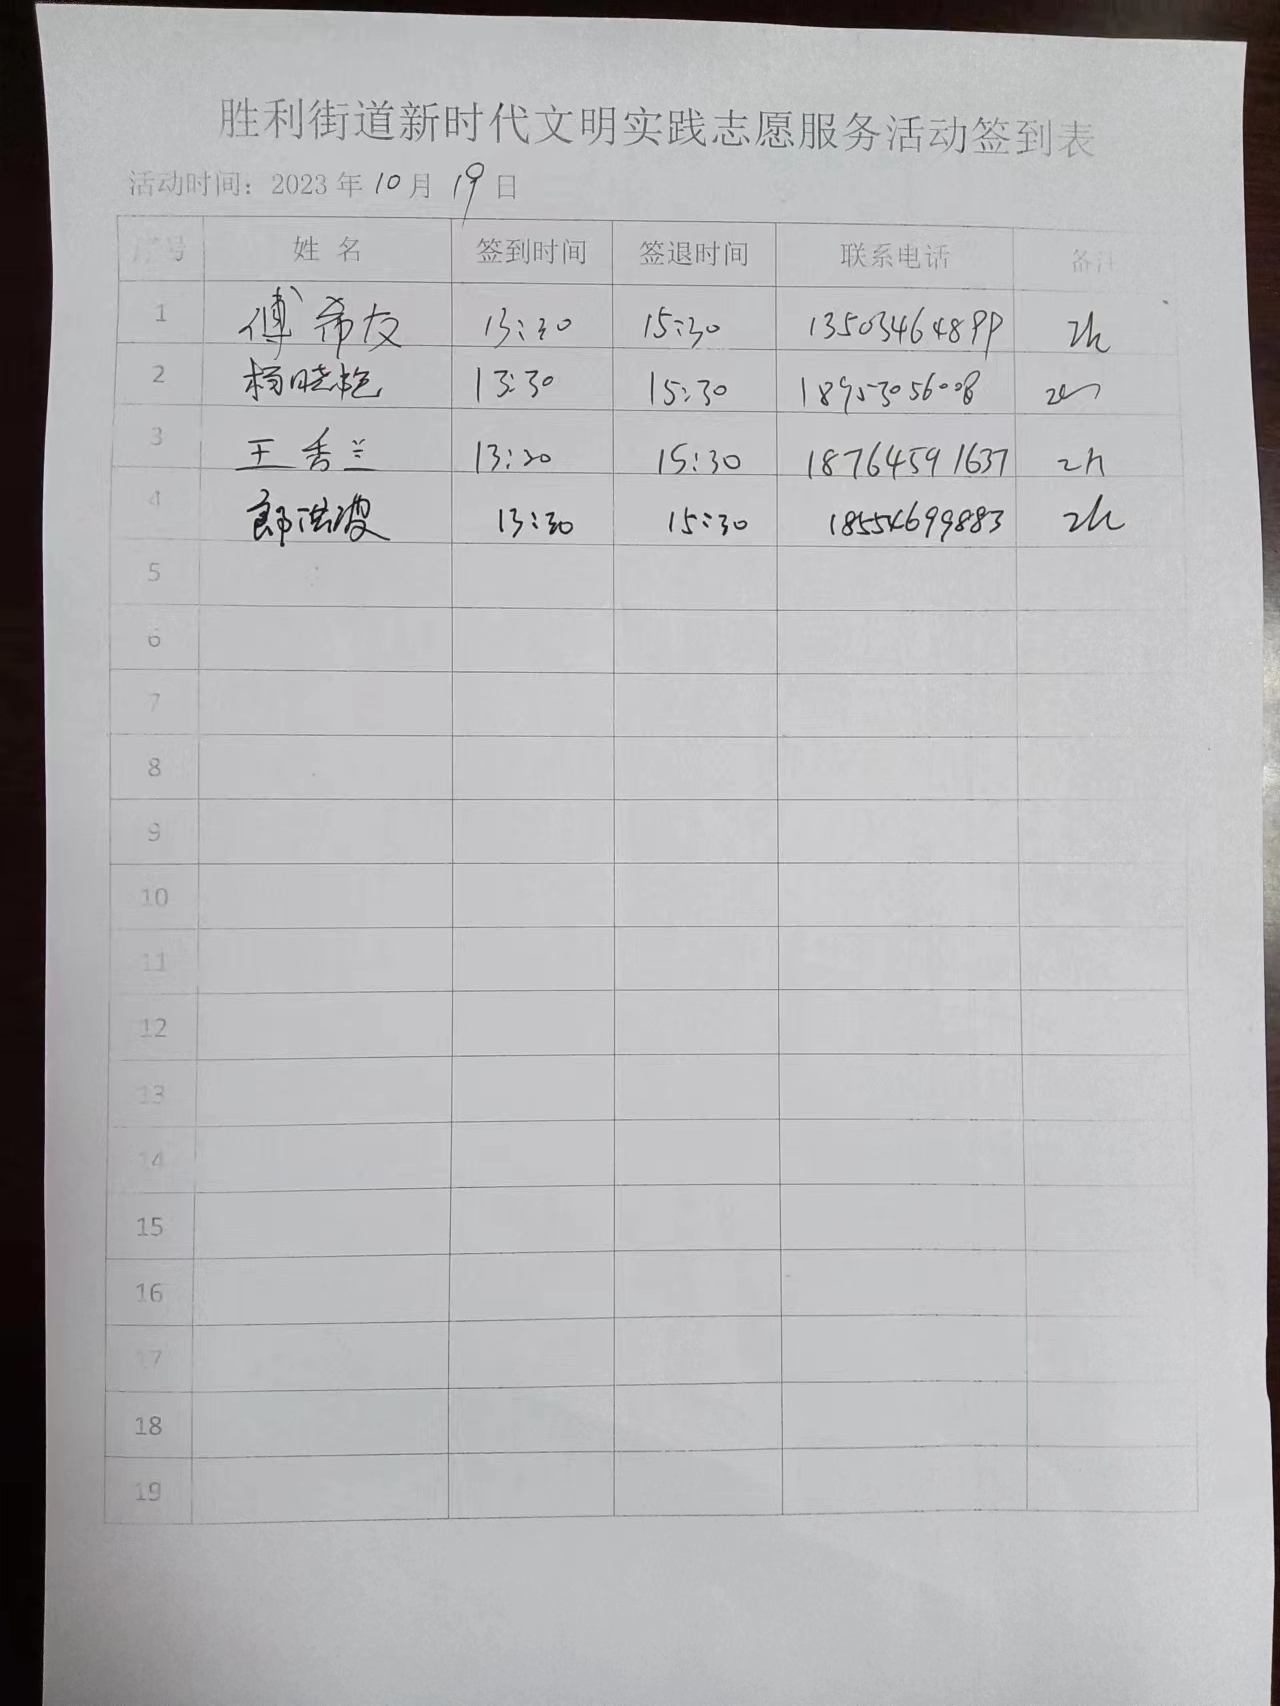 胜利街道新时代文明实践志愿服务活动签到表
活动时间：2023年10月19日
序号 姓 名 签到时间 签退时间 联系电话 备注
1 傅希友 13:30 15:30 13503464899 2h
2 杨晓艳 13:30 15:30 18953056008 2h
3 王秀兰 13:20 15:30 18764591637 2h
4 郎洪波 13:30 15:30 18554699883 2h
5
6
7
8
9
10
11
12
13
14
15
16
17
18
19